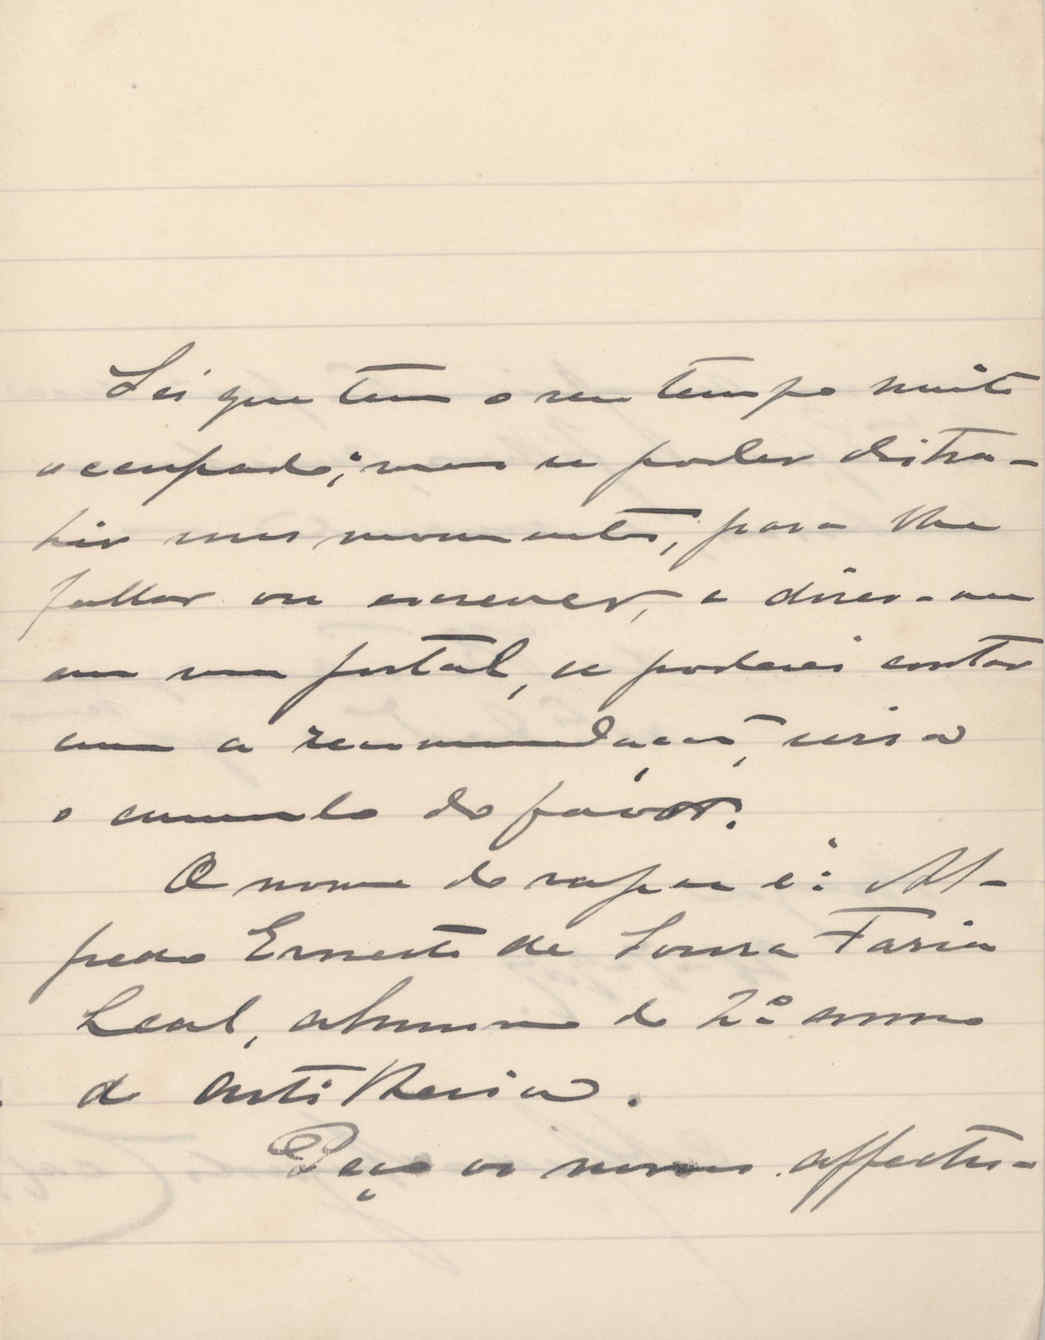 Sei que tem o seu tempo muito
occupado; mas se poder distra-
hir uns momentos, para lhe
fallar ou escrever, e dizer-me
em um postal, se poderei contar
com a recommendação, seria
o cumulo do favor.
O nome do rapaz é: Al-
fredo Ernesto de Sousa Faria
Leal, alumno do 2º anno
de Artilheria.
Peço os nossos affectuo-